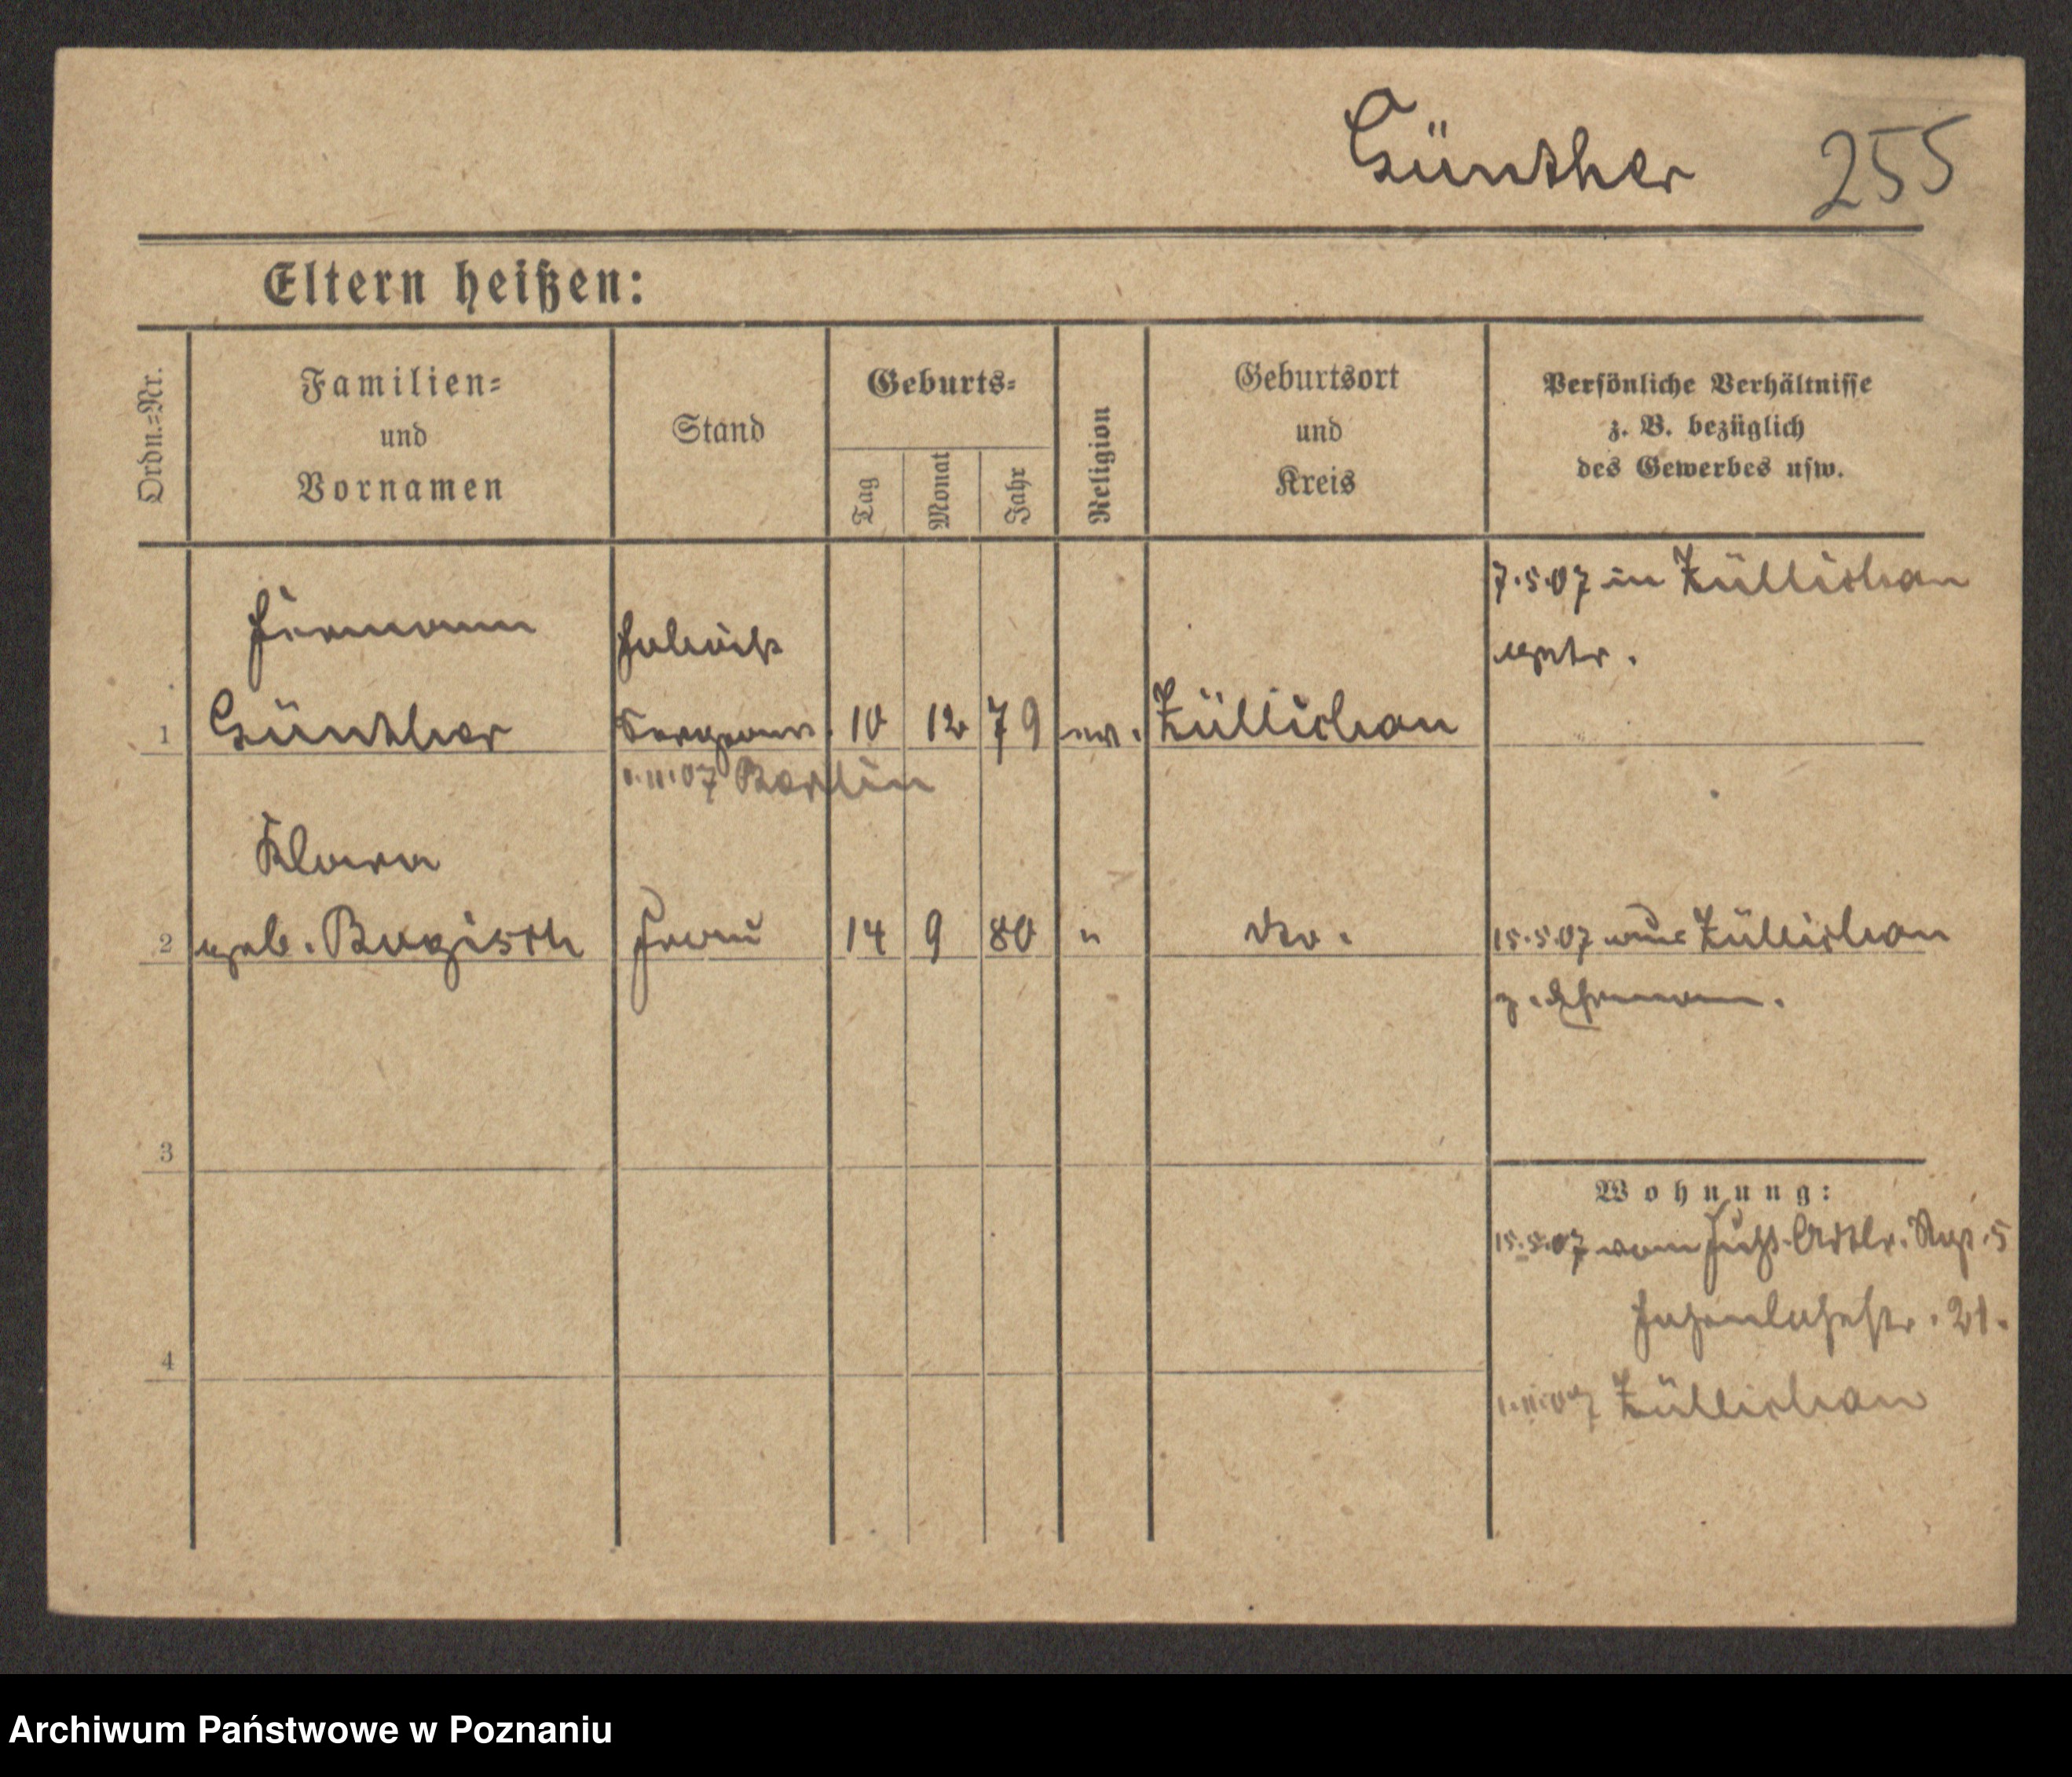 Günther 255
Eltern heißen:
Ordn.=Nr.
Familien=
und
Vornamen
Stand
Geburts=
Tag
Monat
Jahr
Religion
Geburtsort
und
Kreis
Persönliche Verhältnisse
z. B. bezüglich
des Gewerbes usw.
7.5.07 in Züllichau
getr.
Hermann
1 Günther
Sergeant. 10 12 79 ev. Züllichau
1.11.07 Berlin
Klara
2 geb. Bugisch Frau 14 9 80 " do. 15.5.07 aus Züllichau
z. Ehemann.
3
Wohnung:
15.5.07 vom Fußs. Artlr. Rgt. 5
Hohenlohestr. 21.
4
1.11.07 Züllichau
Archiwum Państwowe w Poznaniu